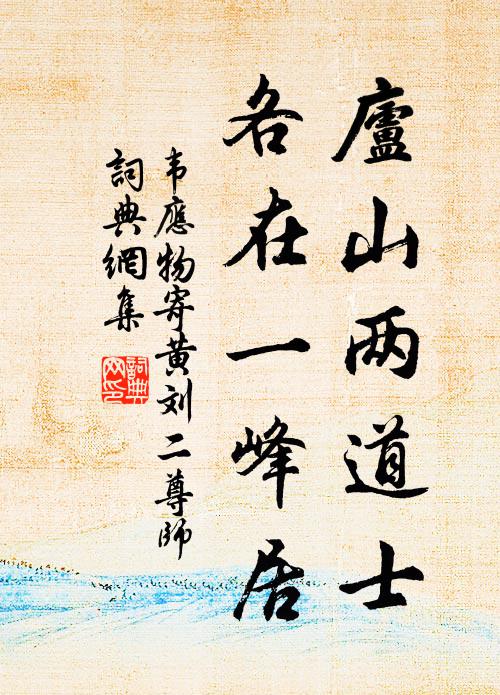 廬山两道士
各在一峰居
韦應物寄黄刘二尊師
詞典網集
詞典网印